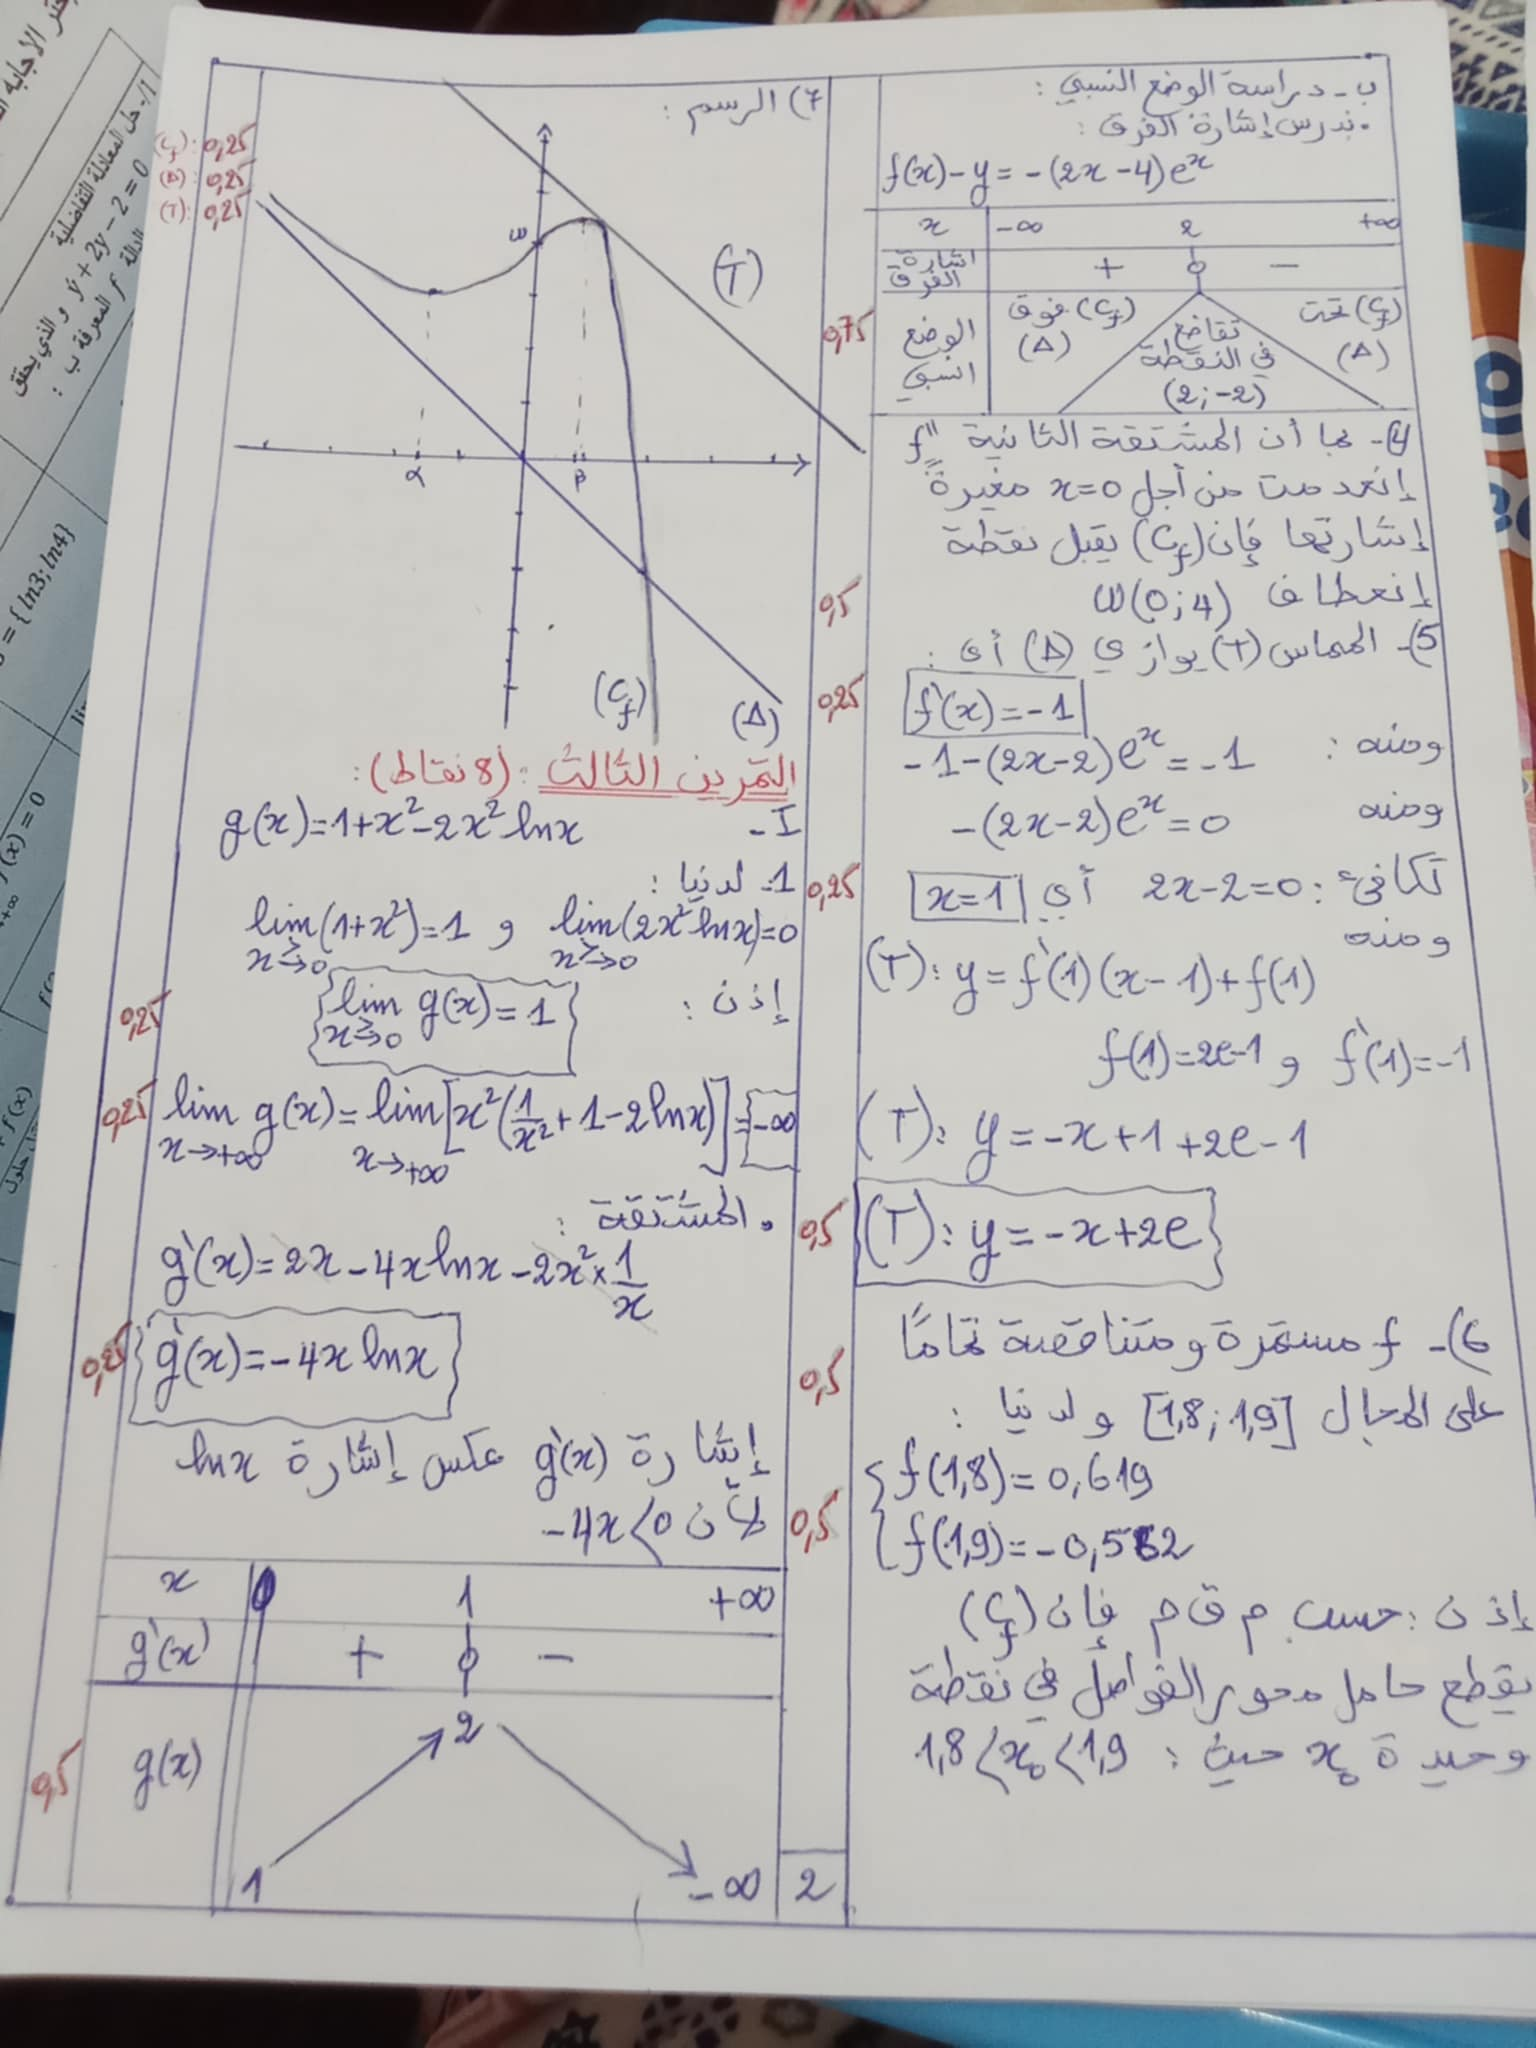 ب - دراسة الوضع النسبي :
. ندرس إشارة الفرق :
f(x)-y=-(2x-4)e^x
x -∞ 2 +∞
إشارة الفرق + 0 -
الوضع النسبي
(Cf) فوق (Δ)
تقاطع في النقطة (2;-2)
(Cf) تحت (Δ)
0,75
4)- بما أن المشتقة الثانية f"
إنعدمت من أجل x=0 مغيرة
إشارتها فإن (Cf) يقبل نقطة
إنعطاف ω(0;4)
0,5
5)- المماس (T) يوازي (Δ) أي :
f'(x)=-1
0,25
ومنه : -1-(2x-2)e^x=-1
ومنه -(2x-2)e^x=0
تكافئ : 2x-2=0 أي x=1
0,25
ومنه
(T): y=f'(1)(x-1)+f(1)
f'(1)=-1 و f(1)=2e-1
(T): y=-x+1+2e-1
(T): y=-x+2e
0,5
6)- f مستمرة و متناقصة تماما
0,5
على المجال [1,8;1,9] و لدنيا :
f(1,8)=0,619
f(1,9)=-0,562
0,5
إذن : حسب م ق م فإن (Cf)
يقطع حامل محور الفواصل في نقطة
وحيدة x₀ حيث : 1,8<x₀<1,9
7) الرسم :
(Cf): 0,25
(Δ): 0,25
(T): 0,25
ω
(T)
α
β
(Cf)
(Δ)
التمرين الثالث : (8 نقاط) :
I- g(x)=1+x²-2x² lnx
1. لدنيا :
lim(2x² lnx)=0 و lim(1+x²)=1
x→0 x→0
إذن : lim g(x)=1
x→0
0,25
lim g(x)=lim[x²(1/x²+1-2lnx)]=-∞
x→+∞ x→+∞
0,25
. المشتقة :
g'(x)=2x-4xlnx-2x²×1/x
g'(x)=-4x lnx
0,25
إشارة g'(x) عكس إشارة lnx
لأن -4x<0
x 0 1 +∞
g'(x) + 0 -
g(x) 1 2 -∞
0,5
2
1/- حل المعادلة التفاضلية
y'+2y-2=0 و الذي يحقق
الدالة f المعرفة ب :
= {ln3;ln4}